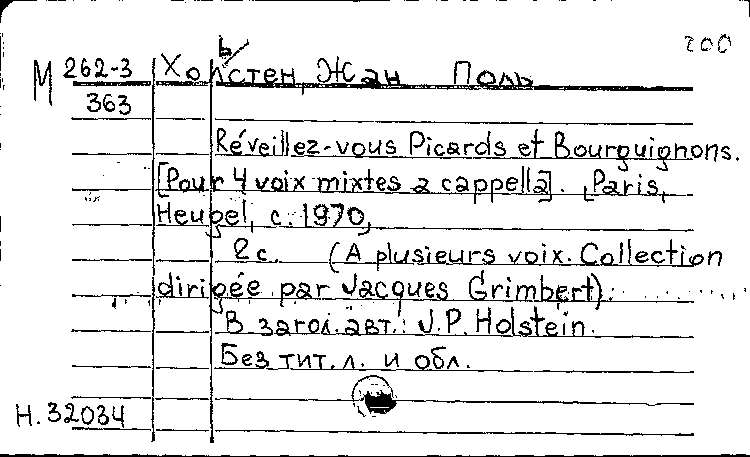 200
М 262-3 Хольстен, Жан Поль
363
Réveillez-vous Picards et Bourguignons.
[Pour 4 voix mixtes a cappella]. [Paris,
Heugel, c. 1970,
2 с. (A plusieurs voix. Collection
dirigée par Jacques Grimbert).
В загол. авт.: J.P. Holstein.
Без тит. л. и обл.
Н. 32034